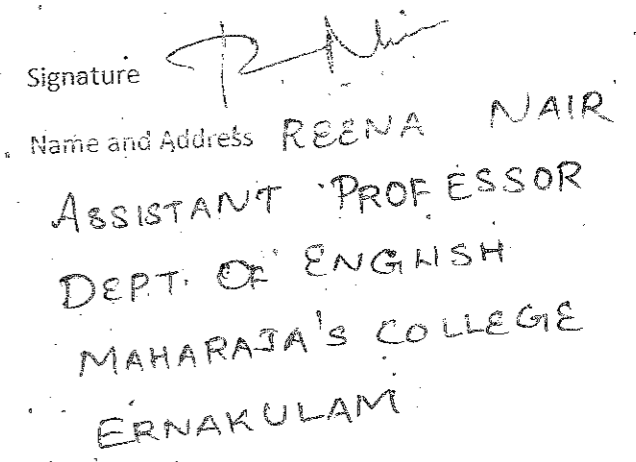 Signature
Name and Address REENA NAIR
ASSISTANT PROFESSOR
DEPT. OF ENGLISH
MAHARAJA'S COLLEGE
ERNAKULAM